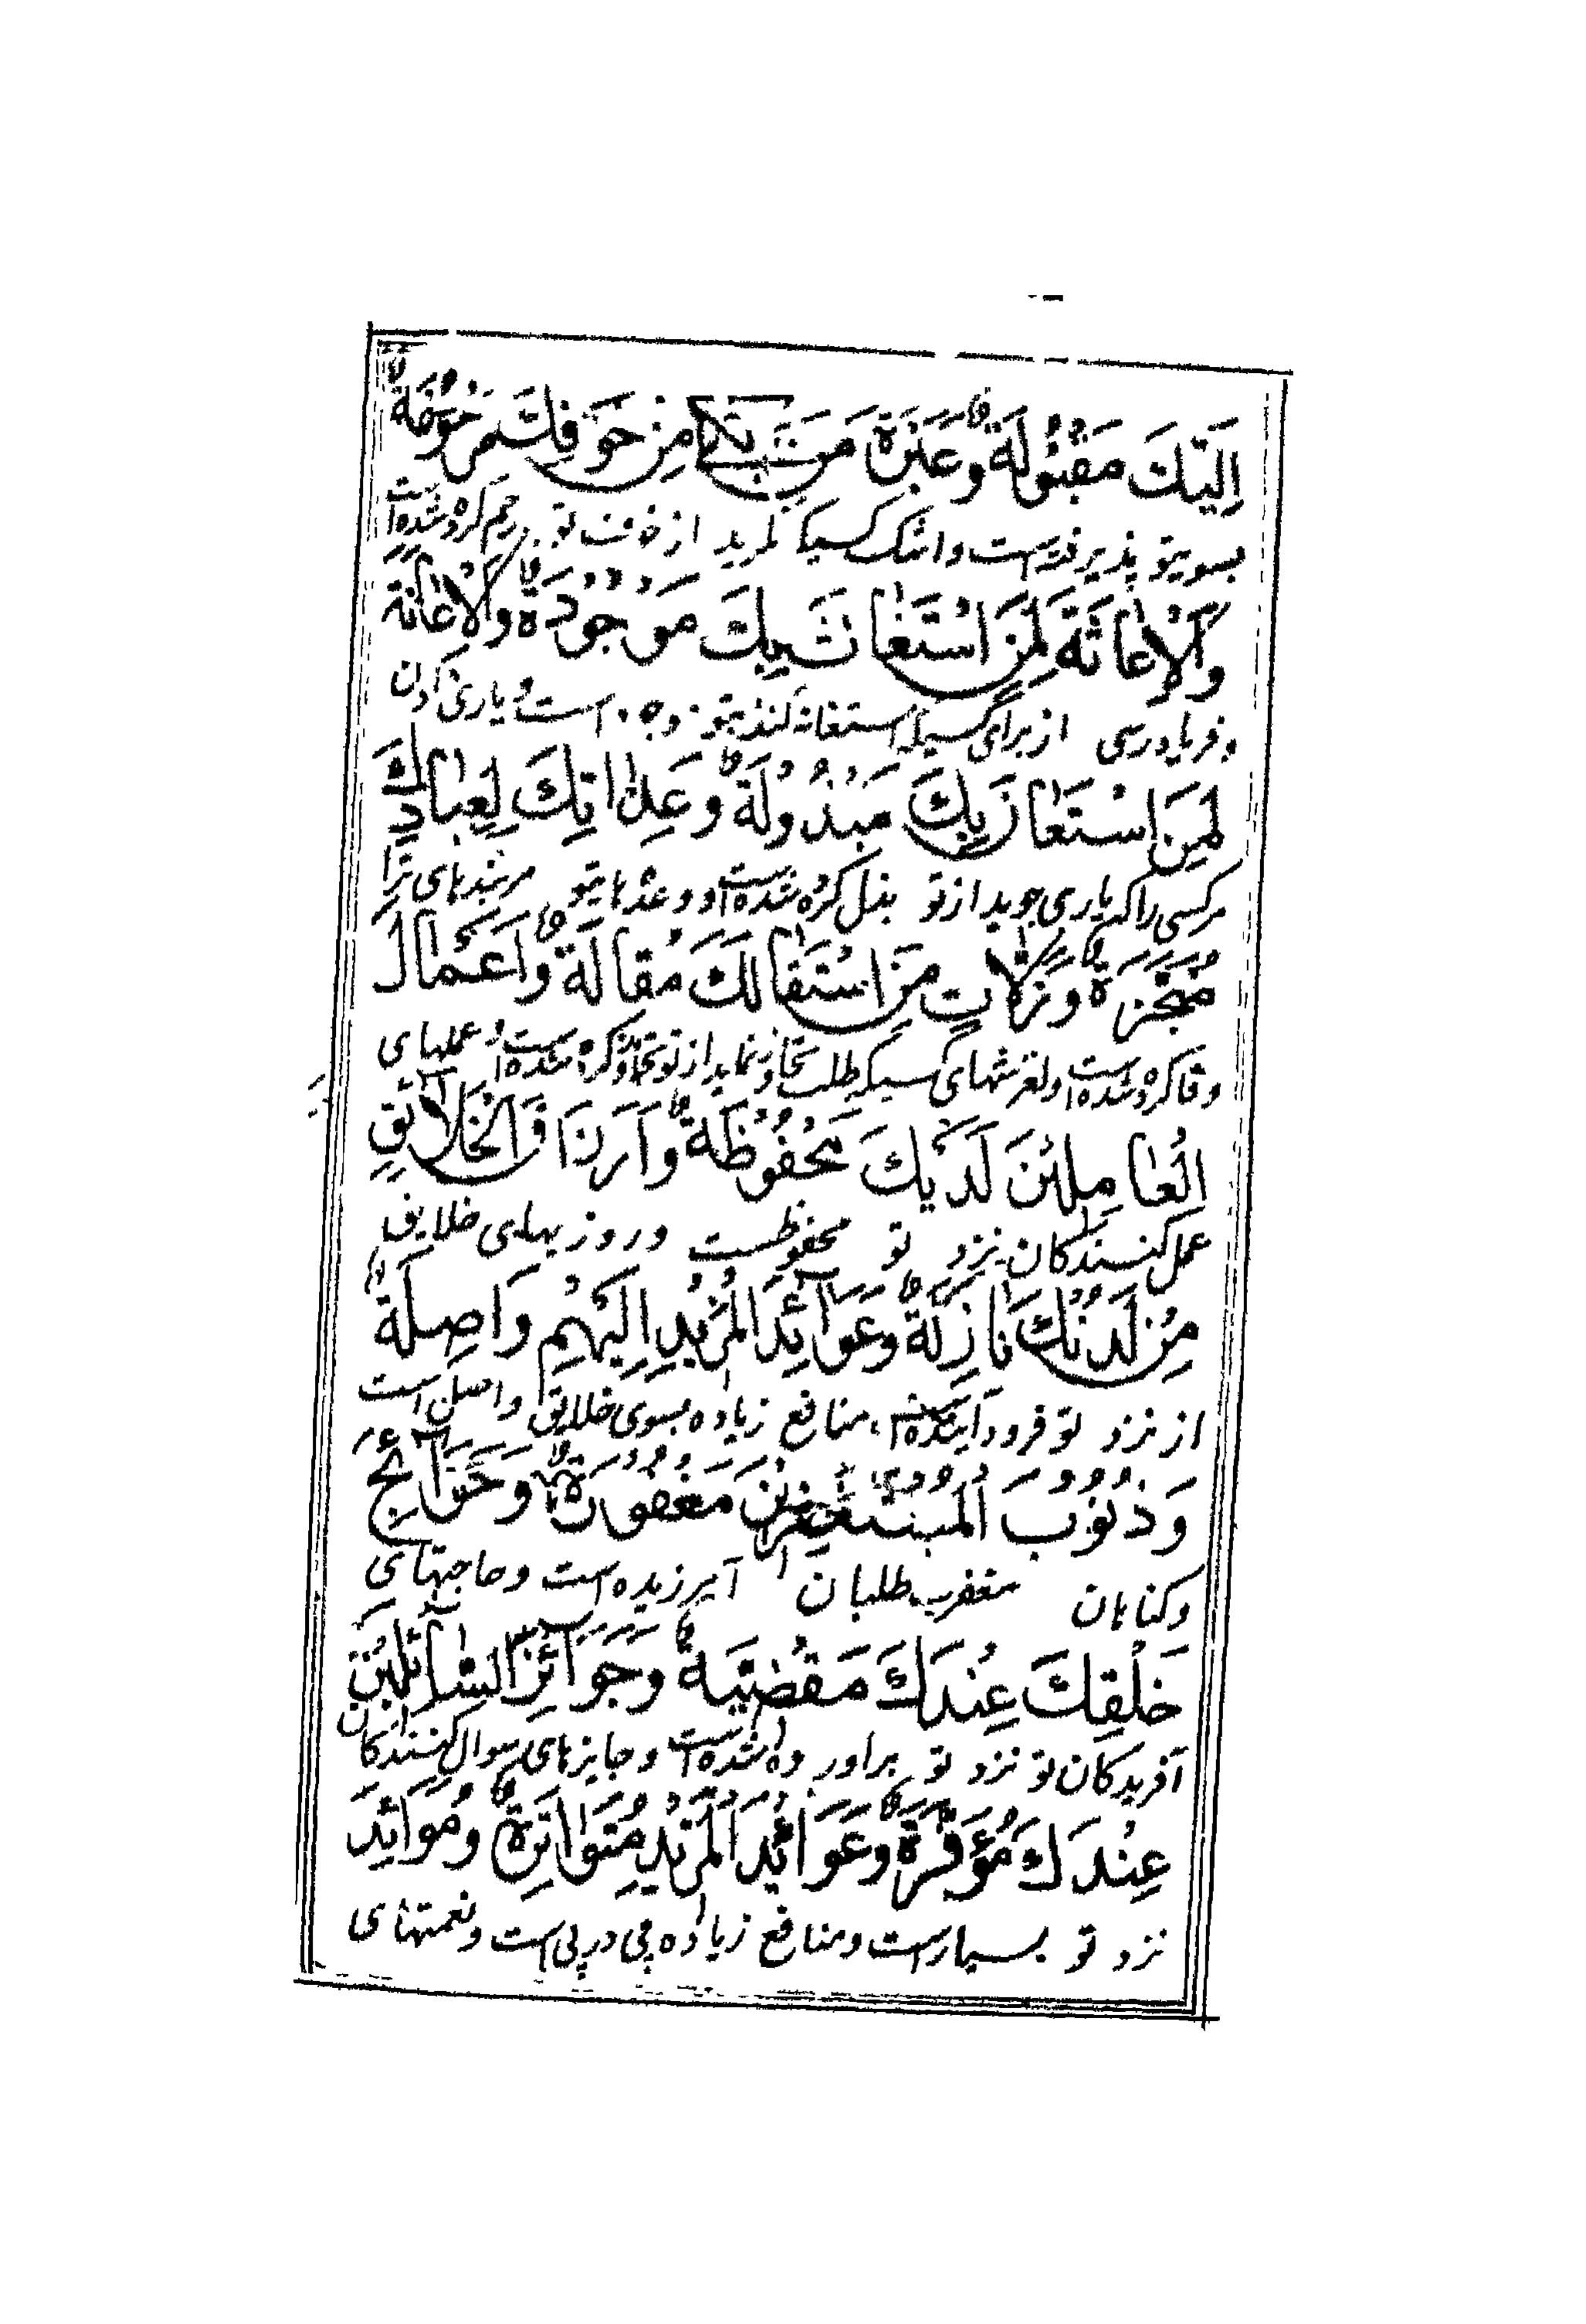 اِلَيْكَ مَقْبُولَةٌ وَعَبْرَةَ مَنْ بَكىٰ مِنْ خَوْفِكَ مَرْحُومَةٌ
بسوی تو پذیرفته است و اشک کسیکه بگرید از خوف تو رحم کرده شده است
وَالْاِغاثَةَ لِمَنِ اسْتَغاثَ بِكَ مَوْجُودَةٌ وَالْاِعانَةَ
و فریادرسی از برای کسیکه استغاثه کند بتو موجود است و یاری کردن
لِمَنِ اسْتَعانَ بِكَ مَبْذُولَةٌ وَعِداتِكَ لِعِبادِكَ
مر کسی را که یاری جوید از تو بذل کرده شده است و وعدهای تو مر بندهای ترا
مُنْجَزَةٌ وَزَلّاتِ مَنِ اسْتَقالَكَ مُقالَةٌ وَاَعْمالَ
وفا کرده شده است و لغزشهای کسیکه طلب تجاوز نماید از تو تجاوز کرده شده است و عملهای
الْعامِلينَ لَدَيْكَ مَحْفُوظَةٌ وَاَرْزَاقَ الْخَلآئِقِ
عمل کنندگان نزد تو محفوظست و روزیهای خلایق
مِنْ لَدُنْكَ نازِلَةٌ وَعَوآئِدَ الْمَزيدِ اِلَيْهِمْ وَاصِلَةٌ
از نزد تو فرود آینده است و منافع زیاده بسوی خلایق واصل است
وَذُنُوبَ الْمُسْتَغْفِرينَ مَغْفُورَةٌ وَحَوآئِجَ
و گناهان مغفرت طلبان آمرزیده است و حاجتهای
خَلْقِكَ عِنْدَكَ مَقْضِيَّةٌ وَجَوآئِزَ السّآئِلينَ
آفریدگان تو نزد تو براورده شده است و جایزهای سوال کنندگان
عِنْدَكَ مُوَفَّرَةٌ وَعَوآئِدَ الْمَزيدِ مُتَواتِرَةٌ وَمَوآئِدَ
نزد تو بسیار است و منافع زیاده پی در پی است و نعمتهای